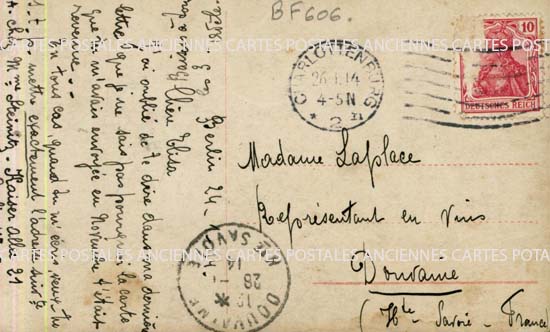 BF606.
10
DEUTSCHES REICH
CHARLOTTENBURG
26.1.14
4-5N
* 2
Madame Laplace
Représentant en Vins
Douvaine
(Hte Savoie - France
DOUVAINE
HTE SAVOIE
28
14
ANCIENNES CARTES POSTALES ANCIENNES CARTES POSTALES ANCIENNES CARTES
CARTES POSTALES ANCIENNES CARTES POSTALES ANCIENNES CARTES POSTA
Berlin 24-
Chère Elisa
J'ai oublié de te dire dans ma dernière
lettre que je ne sais pas pourquoi la carte
que tu m'avais envoyée en Novembre était
revenue.
En tous cas, quand tu m'écris veux-tu
mettre exactement l'adresse
chez Mme Steiner - Kaiser allee 21